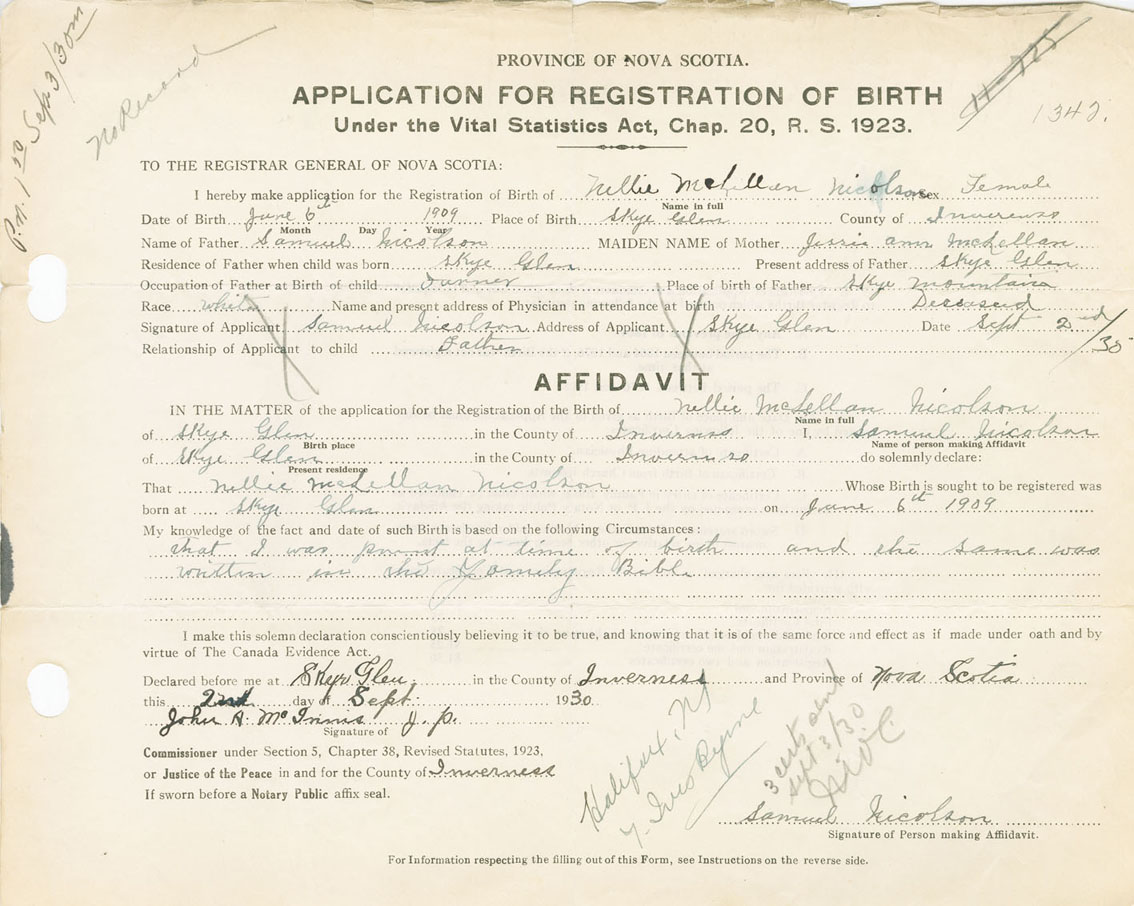 P.N. 1.20 Sept 3/30
No Record
11-725
1342.
PROVINCE OF NOVA SCOTIA.
APPLICATION FOR REGISTRATION OF BIRTH
Under the Vital Statistics Act, Chap. 20, R. S. 1923.
TO THE REGISTRAR GENERAL OF NOVA SCOTIA:
I hereby make application for the Registration of Birth of Nellie McLellan Nicolson Sex Female
Name in full
Date of Birth June 6th 1909 Place of Birth Skye Glen County of Inverness
Month Day Year
Name of Father Samuel Nicolson MAIDEN NAME of Mother Jessie Ann McLellan
Residence of Father when child was born Skye Glen Present address of Father Skye Glen
Occupation of Father at Birth of child Farmer Place of birth of Father Skye Mountain
Race White Name and present address of Physician in attendance at birth Deceased
Signature of Applicant Samuel Nicolson Address of Applicant Skye Glen Date Sept 2nd/30
Relationship of Applicant to child Father
AFFIDAVIT
IN THE MATTER of the application for the Registration of the Birth of Nellie McLellan Nicolson
Name in full
of Skye Glen in the County of Inverness I, Samuel Nicolson
Birth place Name of person making Affidavit
of Skye Glen in the County of Inverness do solemnly declare:
Present residence
That Nellie McLellan Nicolson Whose Birth is sought to be registered was
born at Skye Glen on June 6th 1909
My knowledge of the fact and date of such Birth is based on the following Circumstances:
that I was present at time of birth and the same was
written in the Family Bible
I make this solemn declaration conscientiously believing it to be true, and knowing that it is of the same force and effect as if made under oath and by
virtue of The Canada Evidence Act.
Declared before me at Skye Glen in the County of Inverness and Province of Nova Scotia
this 2nd day of Sept 1930
John A. McInnis J. P.
Signature of
Commissioner under Section 5, Chapter 38, Revised Statutes, 1923,
or Justice of the Peace in and for the County of Inverness
If sworn before a Notary Public affix seal.
Halifax, NS
3 certs sent
Sept 3/30
Samuel Nicolson
Signature of Person making Affidavit.
For Information respecting the filling out of this Form, see Instructions on the reverse side.